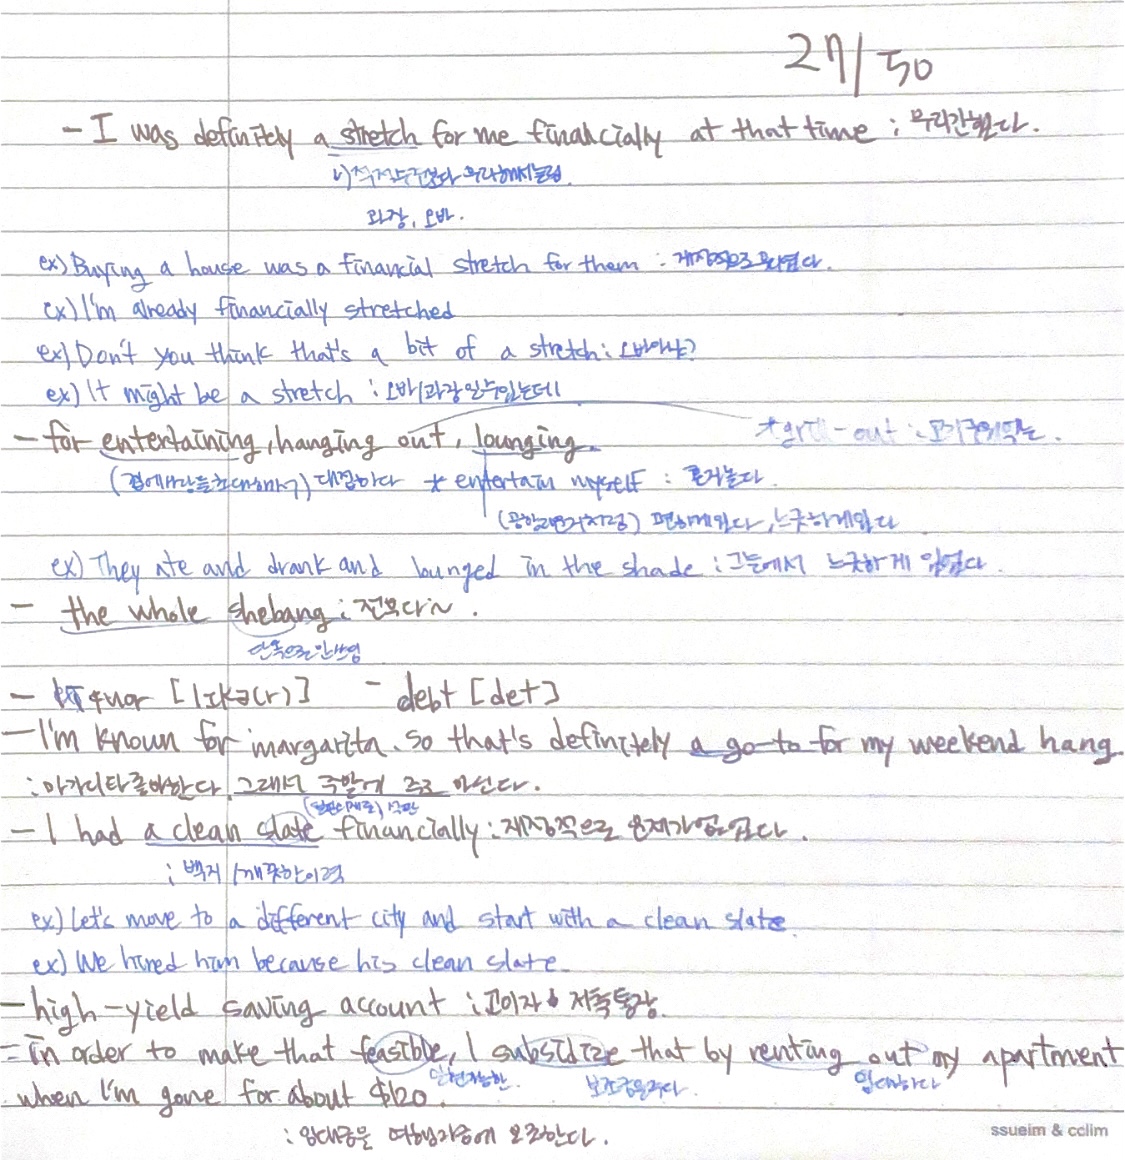 27/50
- I was definitely a stretch for me financially at that time ; 무리간했다.
과장, 오바.
ex) Buying a house was a financial stretch for them : 재정적으로 무리였다.
ex) I'm already financially stretched
ex) Don't you think that's a bit of a stretch : 오바아냐?
ex) It might be a stretch : 오바/과장일수있는데
- for entertaining, hanging out, lounging.
*grill-out : 고기구워먹는.
(집에사람들초대해서) 대접하다 * entertain myself : 혼자놀다.
편하게있다, 느긋하게있다
ex) They ate and drank and lounged in the shade : 그늘에서 느긋하게 있었다.
- the whole shebang ; 전부다~.
단독으로안쓰임
- debt [det]
- I'm known for margarita. so that's definitely a go-to for my weekend hang
: 마가리타좋아한다. 그래서 주말에 주로 마신다.
- I had a clean slate financially : 재정적으로 문제가없었다.
; 백지/깨끗한이력
ex) Let's move to a different city and start with a clean slate.
ex) We hired him because his clean slate.
- high-yield saving account ; 고이자 저축통장.
- in order to make that feasible, I subsidize that by renting out my apartment
실현가능한. 보조금을주다. 임대하다
when I'm gone for about $120.
: 임대금을 여행자금에 보충한다.
ssueim & cclim